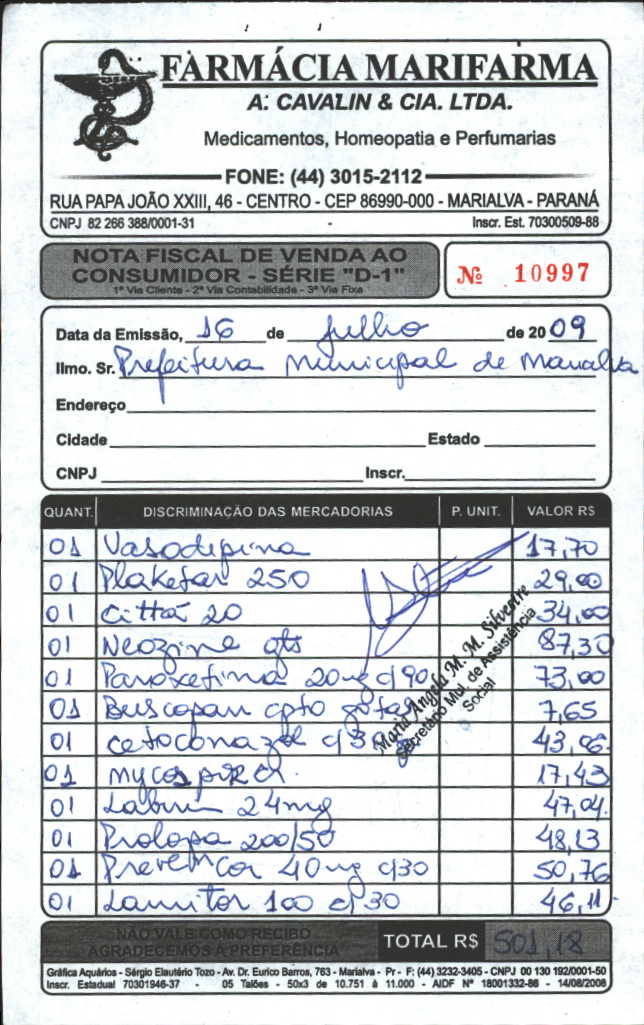 FARMÁCIA MARIFARMA
A. CAVALIN & CIA. LTDA.
Medicamentos, Homeopatia e Perfumarias
FONE: (44) 3015-2112
RUA PAPA JOÃO XXIII, 46 - CENTRO - CEP 86990-000 - MARIALVA - PARANÁ
CNPJ 82 266 388/0001-31 Inscr. Est. 70300509-88
NOTA FISCAL DE VENDA AO
CONSUMIDOR - SÉRIE "D-1"
1ª Via Cliente - 2ª Via Contabilidade - 3ª Via Fixa
Nº 10997
Data da Emissão, 16 de Julho de 2009
Ilmo. Sr. Prefeitura Municipal de Marialva
Endereço
Cidade Estado
CNPJ Inscr.
QUANT. DISCRIMINAÇÃO DAS MERCADORIAS P. UNIT. VALOR R$
01 Vasodipina 17,70
01 Plaketar 250 29,00
01 Cittá 20 34,00
01 Neozine gts 87,30
01 Paroxetina 20mg c/90 73,00
01 Buscopan cpto gotas 7,65
01 Cetoconazol c/30 43,06
01 17,43
01 Labirin 24mg 47,04
01 Prolopa 200/50 48,13
01 Prevencor 40mg c/30 50,76
01 Lamitor 100 c/30 46,11
Maria Angela M. M. Silvestre
Secretário Mul. de Assistência
Social
NÃO VALE COMO RECIBO
AGRADECEMOS A PREFERÊNCIA
TOTAL R$ 501,18
Gráfica Aquários - Sérgio Elautério Tozo - Av. Dr. Eurico Barros, 763 - Marialva - Pr - F: (44) 3232-3405 - CNPJ 00 130 192/0001-50
Inscr. Estadual 70301946-37 - 05 Talões - 50x3 de 10.751 à 11.000 - AIDF Nº 18001332-86 - 14/08/2008